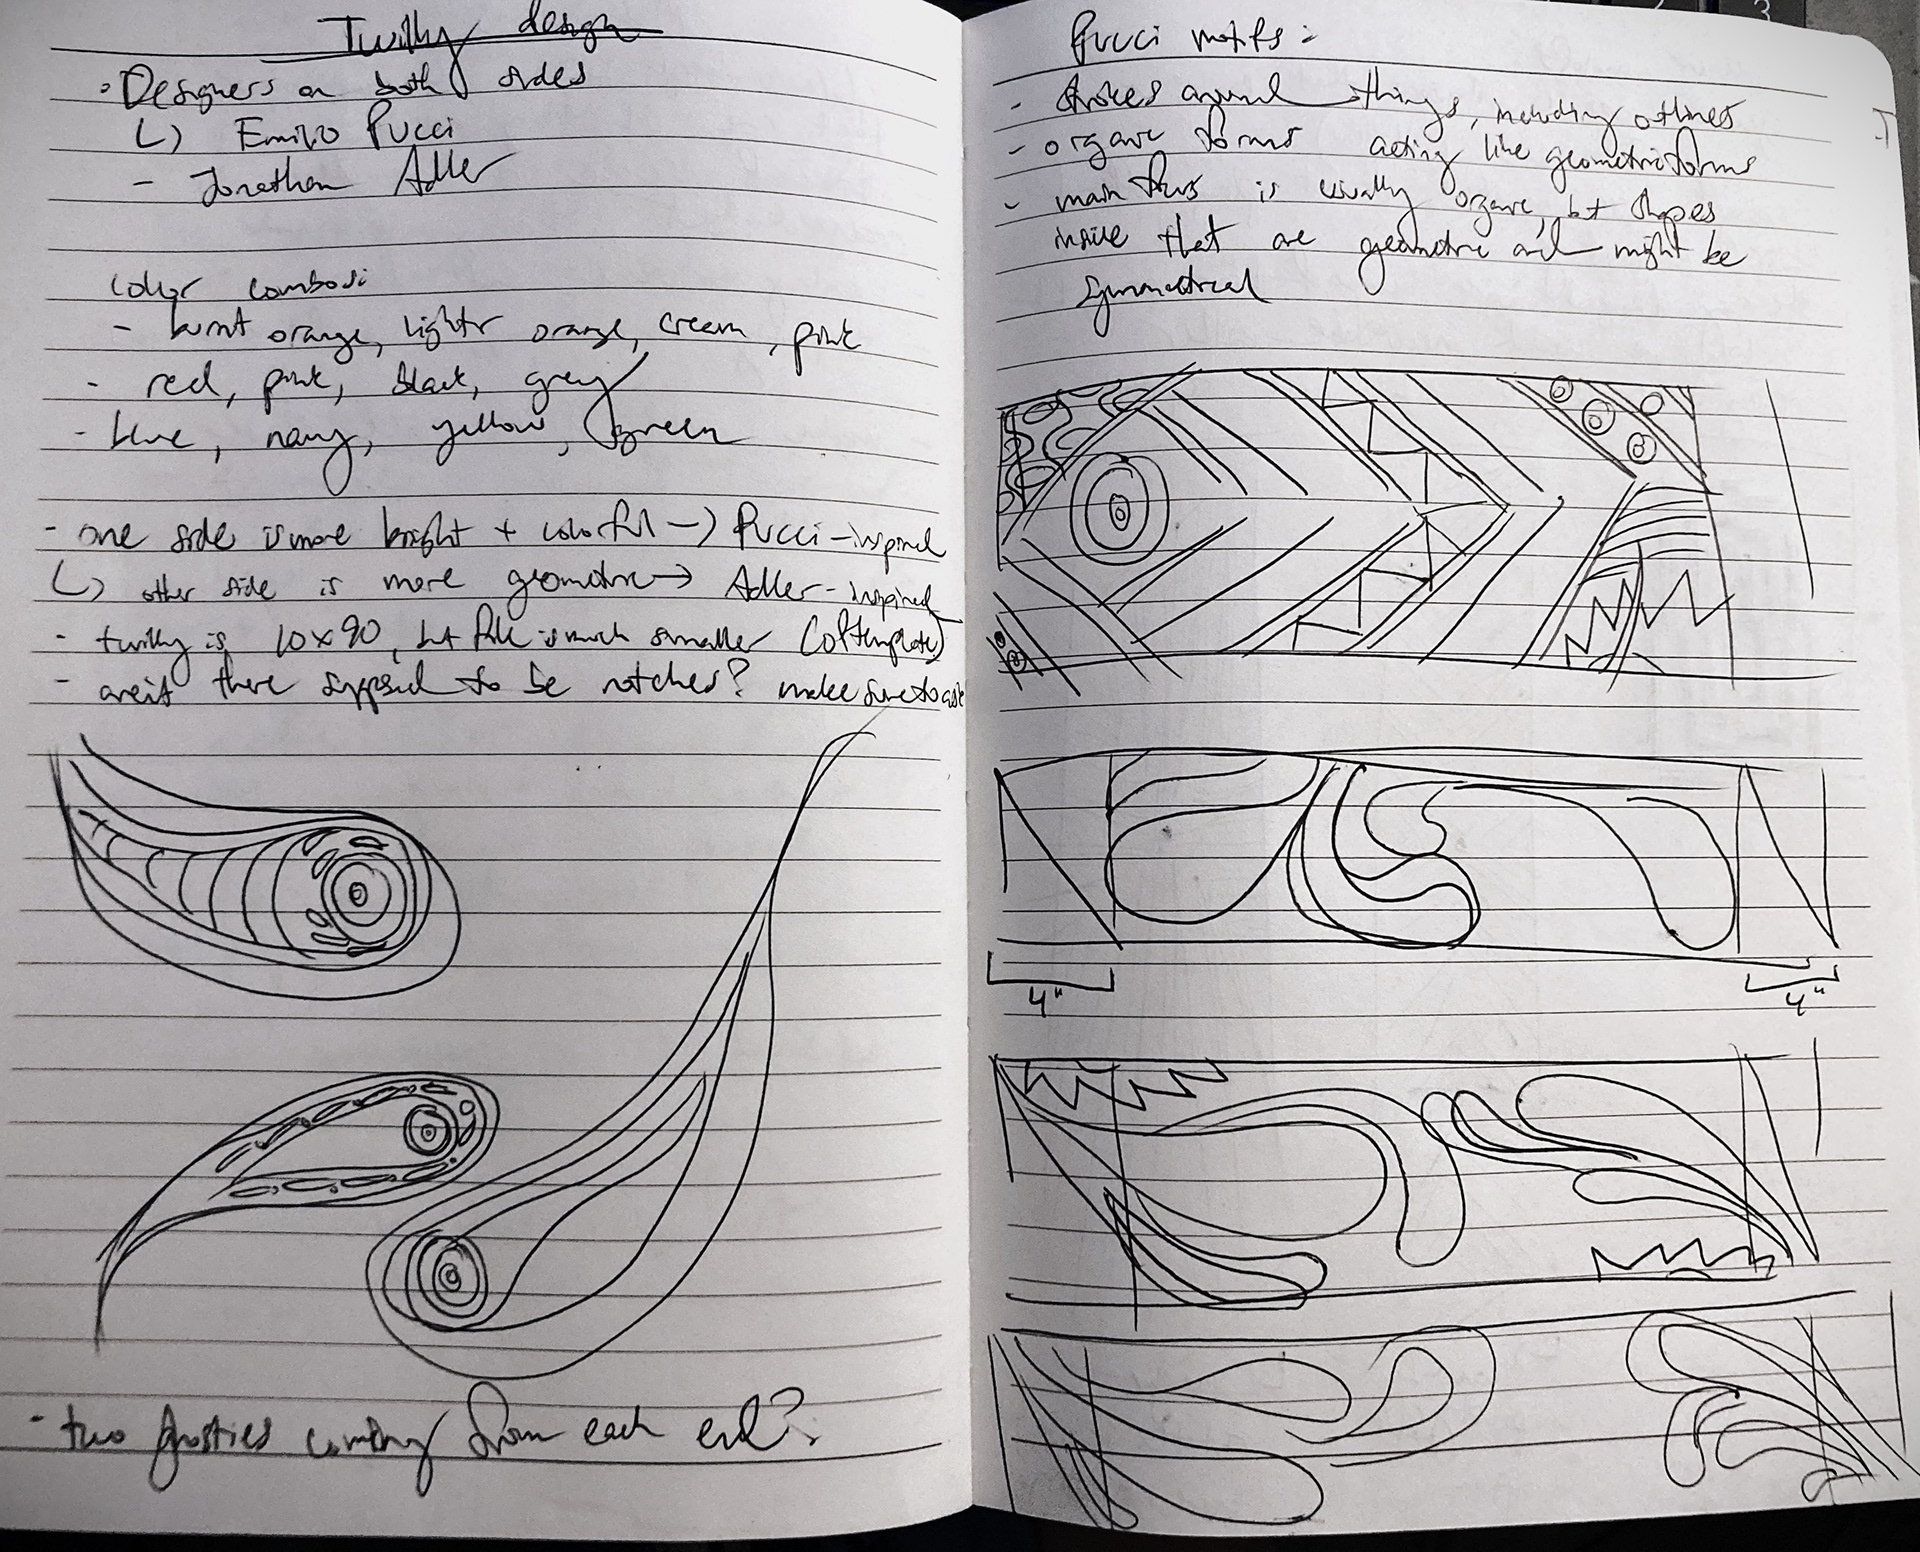 Twilly design
· Designers on both sides
↳ Emilio Pucci
- Jonathan Adler
color combos:
- burnt orange, lighter orange, cream, pink
- red, pink, black, grey
- blue, navy, yellow, green
- one side is more bright + colorful → Pucci-inspired
↳ other side is more geometric → Adler-inspired
- twilly is 10x90, but file is much smaller (of template)
- aren't there supposed to be notches? make sure to ask
- two coming from each end?
Pucci motifs:
- strokes around things, including outlines
- organic forms acting like geometric forms
- main focus is usually organic, but shapes
inside that are geometric and might be
symmetrical
4" 4"